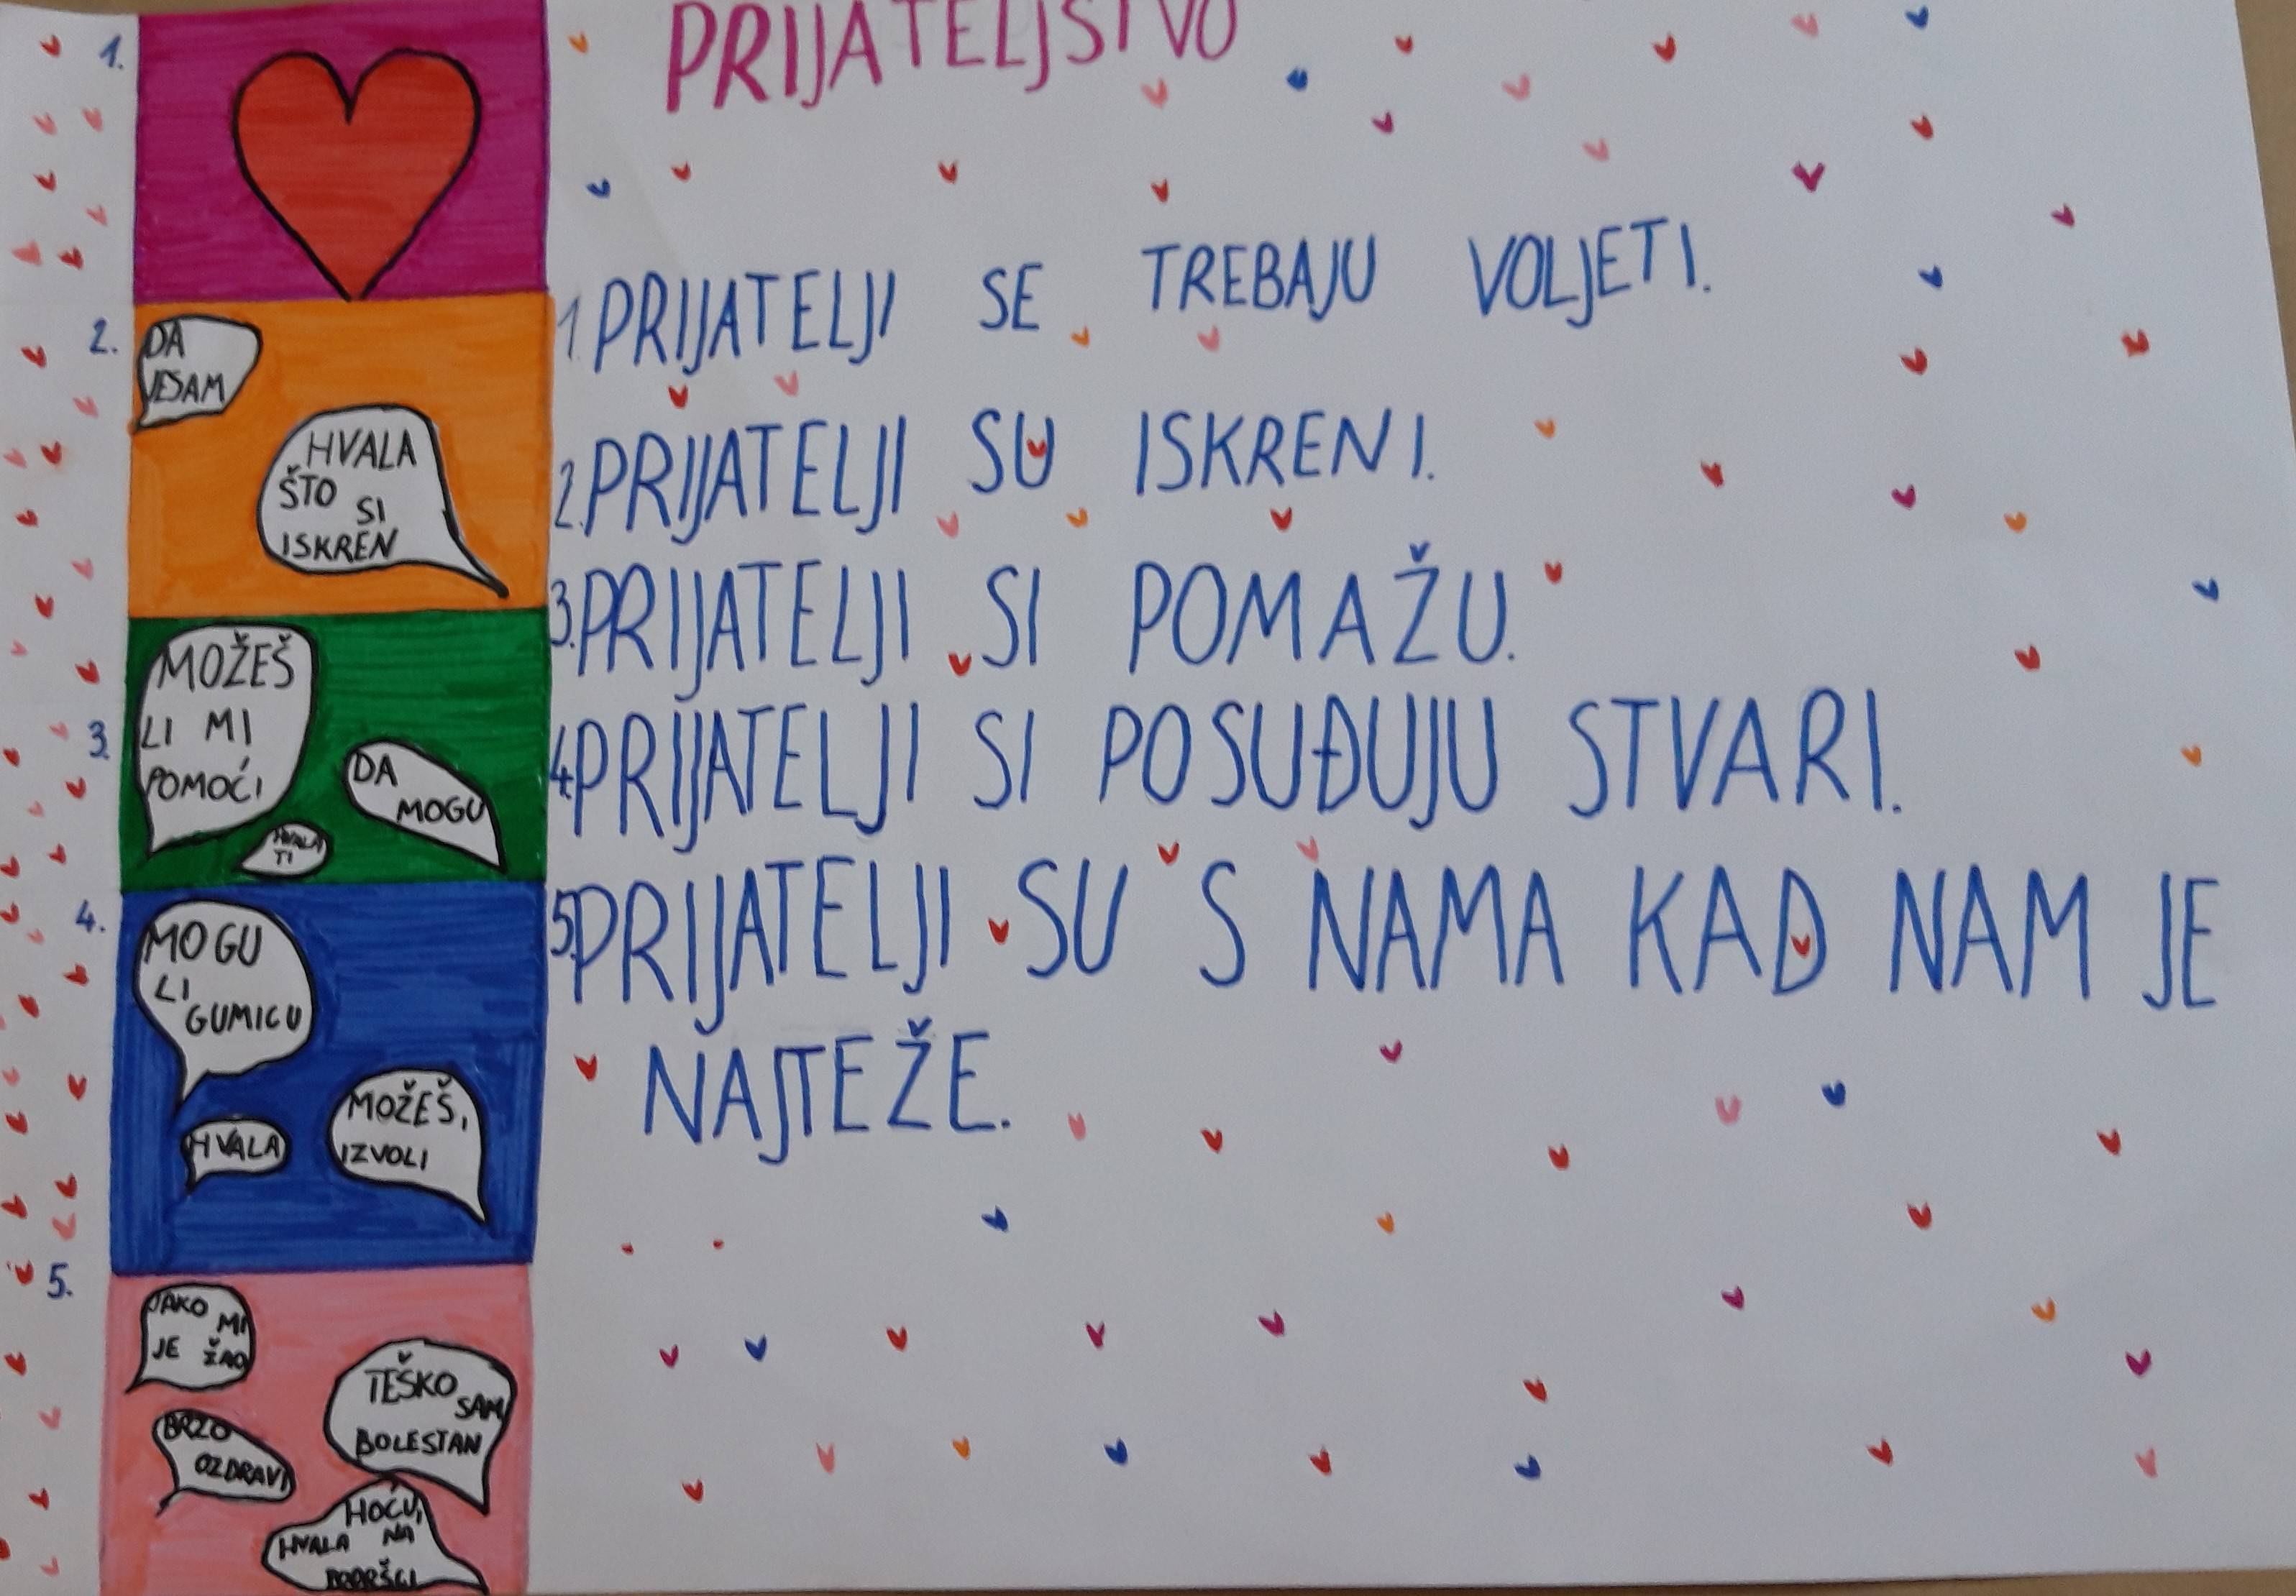 PRIJATELJSTVO
1.
2.
DA
JESAM
HVALA
ŠTO SI
ISKREN
3.
MOŽEŠ
LI MI
POMOĆI
DA
MOGU
HVALA
TI
4.
MOGU
LI
GUMICU
HVALA
MOŽEŠ,
IZVOLI
5.
JAKO MI
JE ŽAO
TEŠKO
SAM
BOLESTAN
BRZO
OZDRAVI
HOĆU,
HVALA NA
PODRŠCI
1. PRIJATELJI SE TREBAJU VOLJETI.
2. PRIJATELJI SU ISKRENI.
3. PRIJATELJI SI POMAŽU.
4. PRIJATELJI SI POSUĐUJU STVARI.
5. PRIJATELJI SU S NAMA KAD NAM JE
NAJTEŽE.